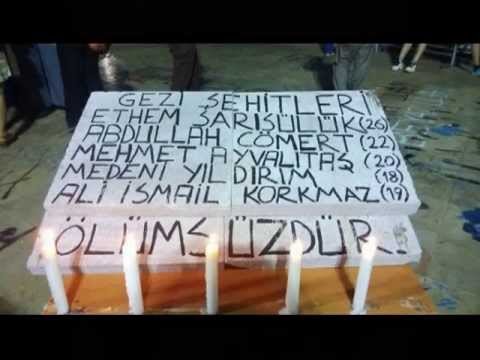 GEZİ ŞEHİTLERİ
ETHEM SARISÜLÜK (26)
ABDULLAH CÖMERT (22)
MEHMET AYVALITAŞ (20)
MEDENİ YILDIRIM (18)
ALİ İSMAİL KORKMAZ (19)
ÖLÜMSÜZDÜR!